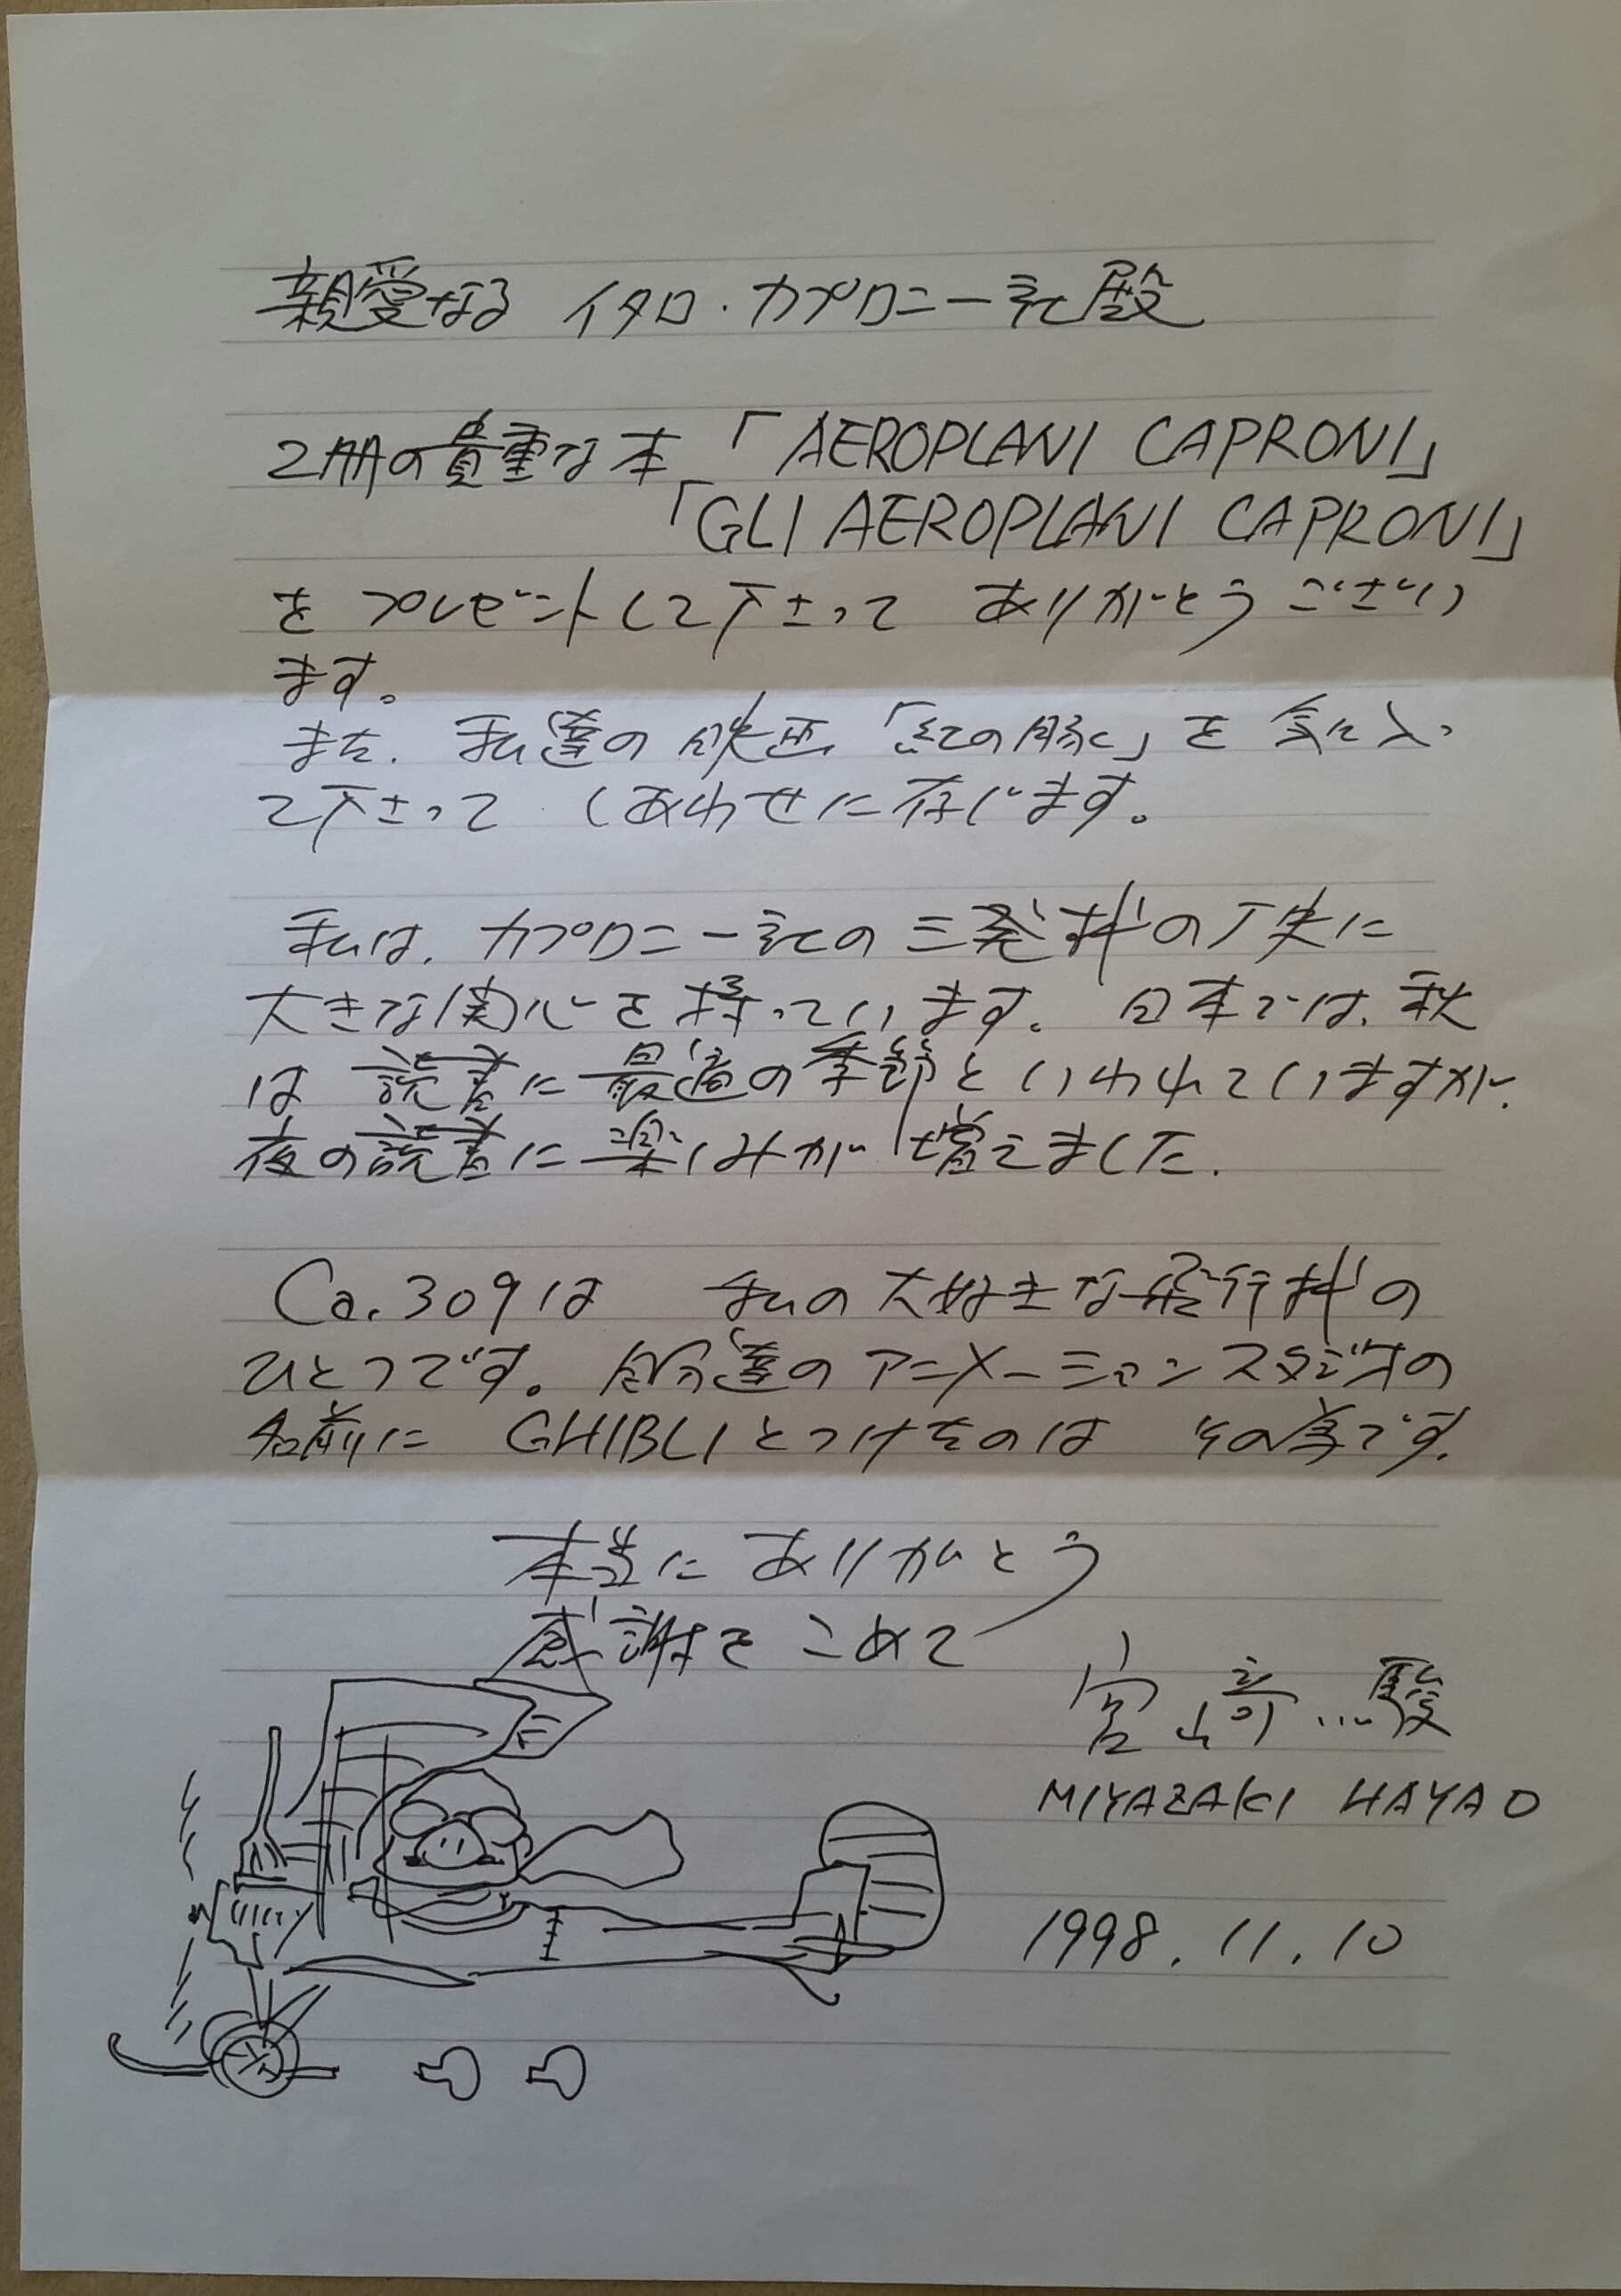 親愛なる イタロ・カプロニー社殿
2冊の貴重な本「AEROPLANI CAPRONI」
「GLI AEROPLANI CAPRONI」
をプレゼントして下さって ありがとうござい
ます。
また、私達の映画「紅の豚」を気に入っ
て下さって しあわせに存じます。
私は、カプロニー社の三発機の歴史に
大きな関心を持っています。日本では、秋
は読書に最適の季節といわれていますが、
夜の読書に楽しみが増えました.
Ca.309は 私の大好きな飛行機の
ひとつです。自分達のアニメーションスタジオの
名前に GHIBLIとつけたのは その為です.
本当に ありがとう
感謝をこめて
宮崎駿
MIYAZAKI HAYAO
1998.11.10